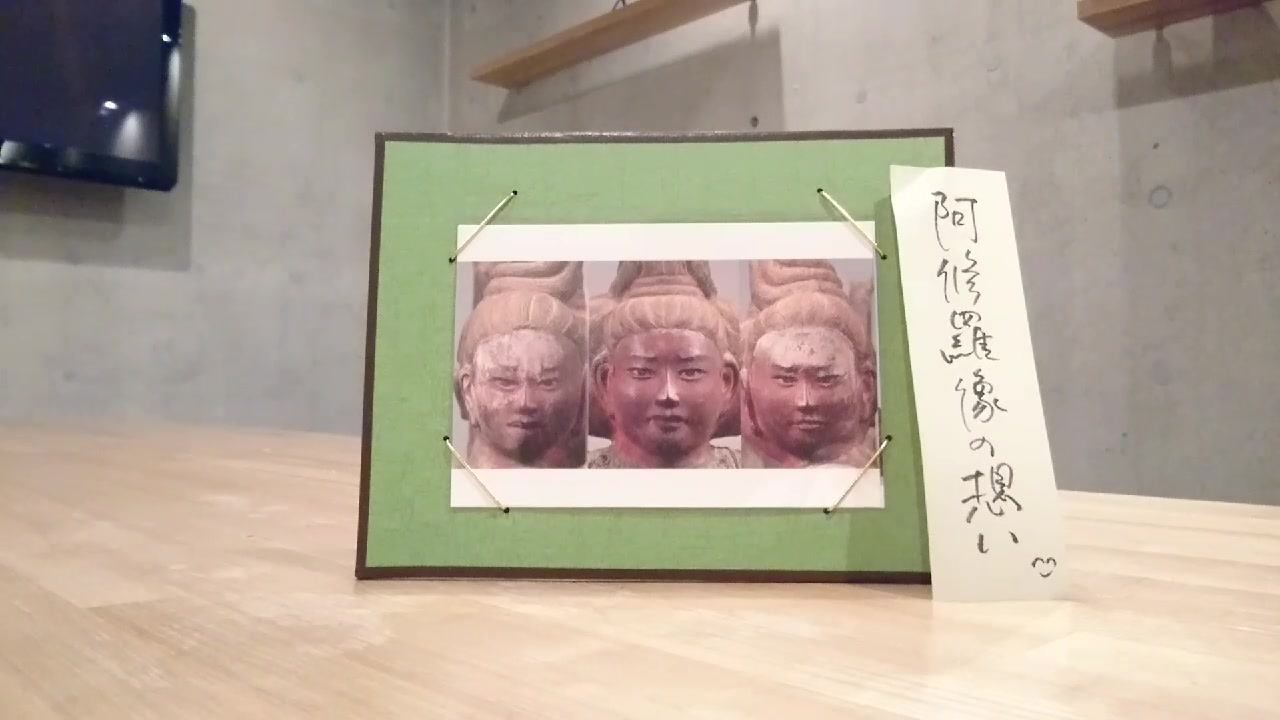 阿修羅像の想い